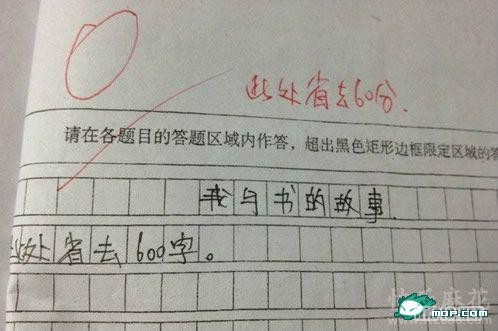 此处省去60分.
请在各题目的答题区域内作答，超出黑色矩形边框限定区域的答
我与书的故事
此处省去600字。
MOP.COM